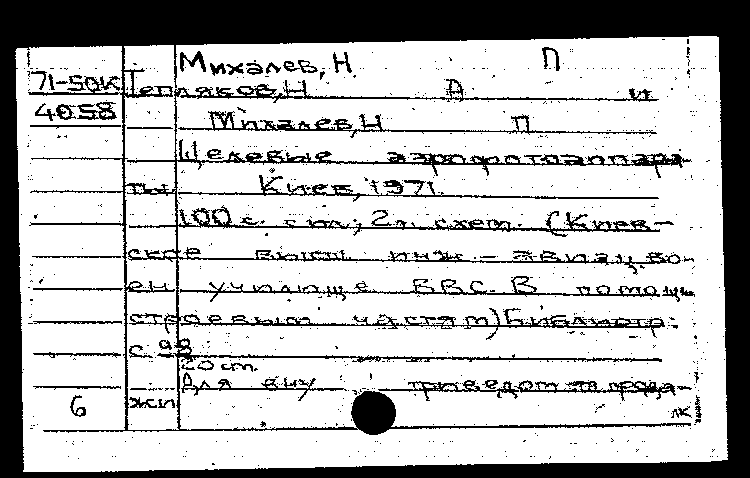 Михалев, Н П
71-50к Тепляков, Н А и
4058
Михалев, Н П
Щелевые аэрофотоаппара-
ты. Киев, 1971.
100 с. с ил; 2 л. схем. (Киев-
ское высш инж - авиац. во-
ен училище ВВС. В помощь
строевым частям) Библиогр:
с 98
20 см.
Для вну
6 жи
лк